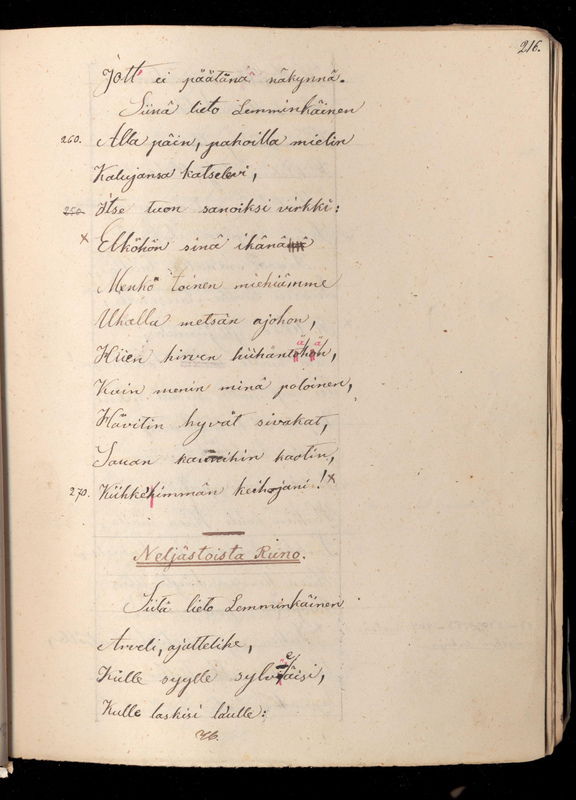 216.
Jott' ei päätänä näkynnä.
Siinä lieto Lemminkäinen
260. Alla päin, pahoilla mielin
Kalujansa katselevi,
250 Itse tuon sanoiksi virkki:
x Elköhön sinä ikänä
Menkö toinen miehiämme
Uhalla metsän ajohon,
Hiien hirven hiihäntähän,
Kuin menin minä poloinen,
Hävitin hyvät sivakat,
Sauan kaunihin kaotin,
270. Kiihkeimmän keihojani! x
Neljästoista Runo.
Siitä lieto Lemminkäinen
Arveli, ajattelike,
Külle syylle
Kulle laskisi laulle: